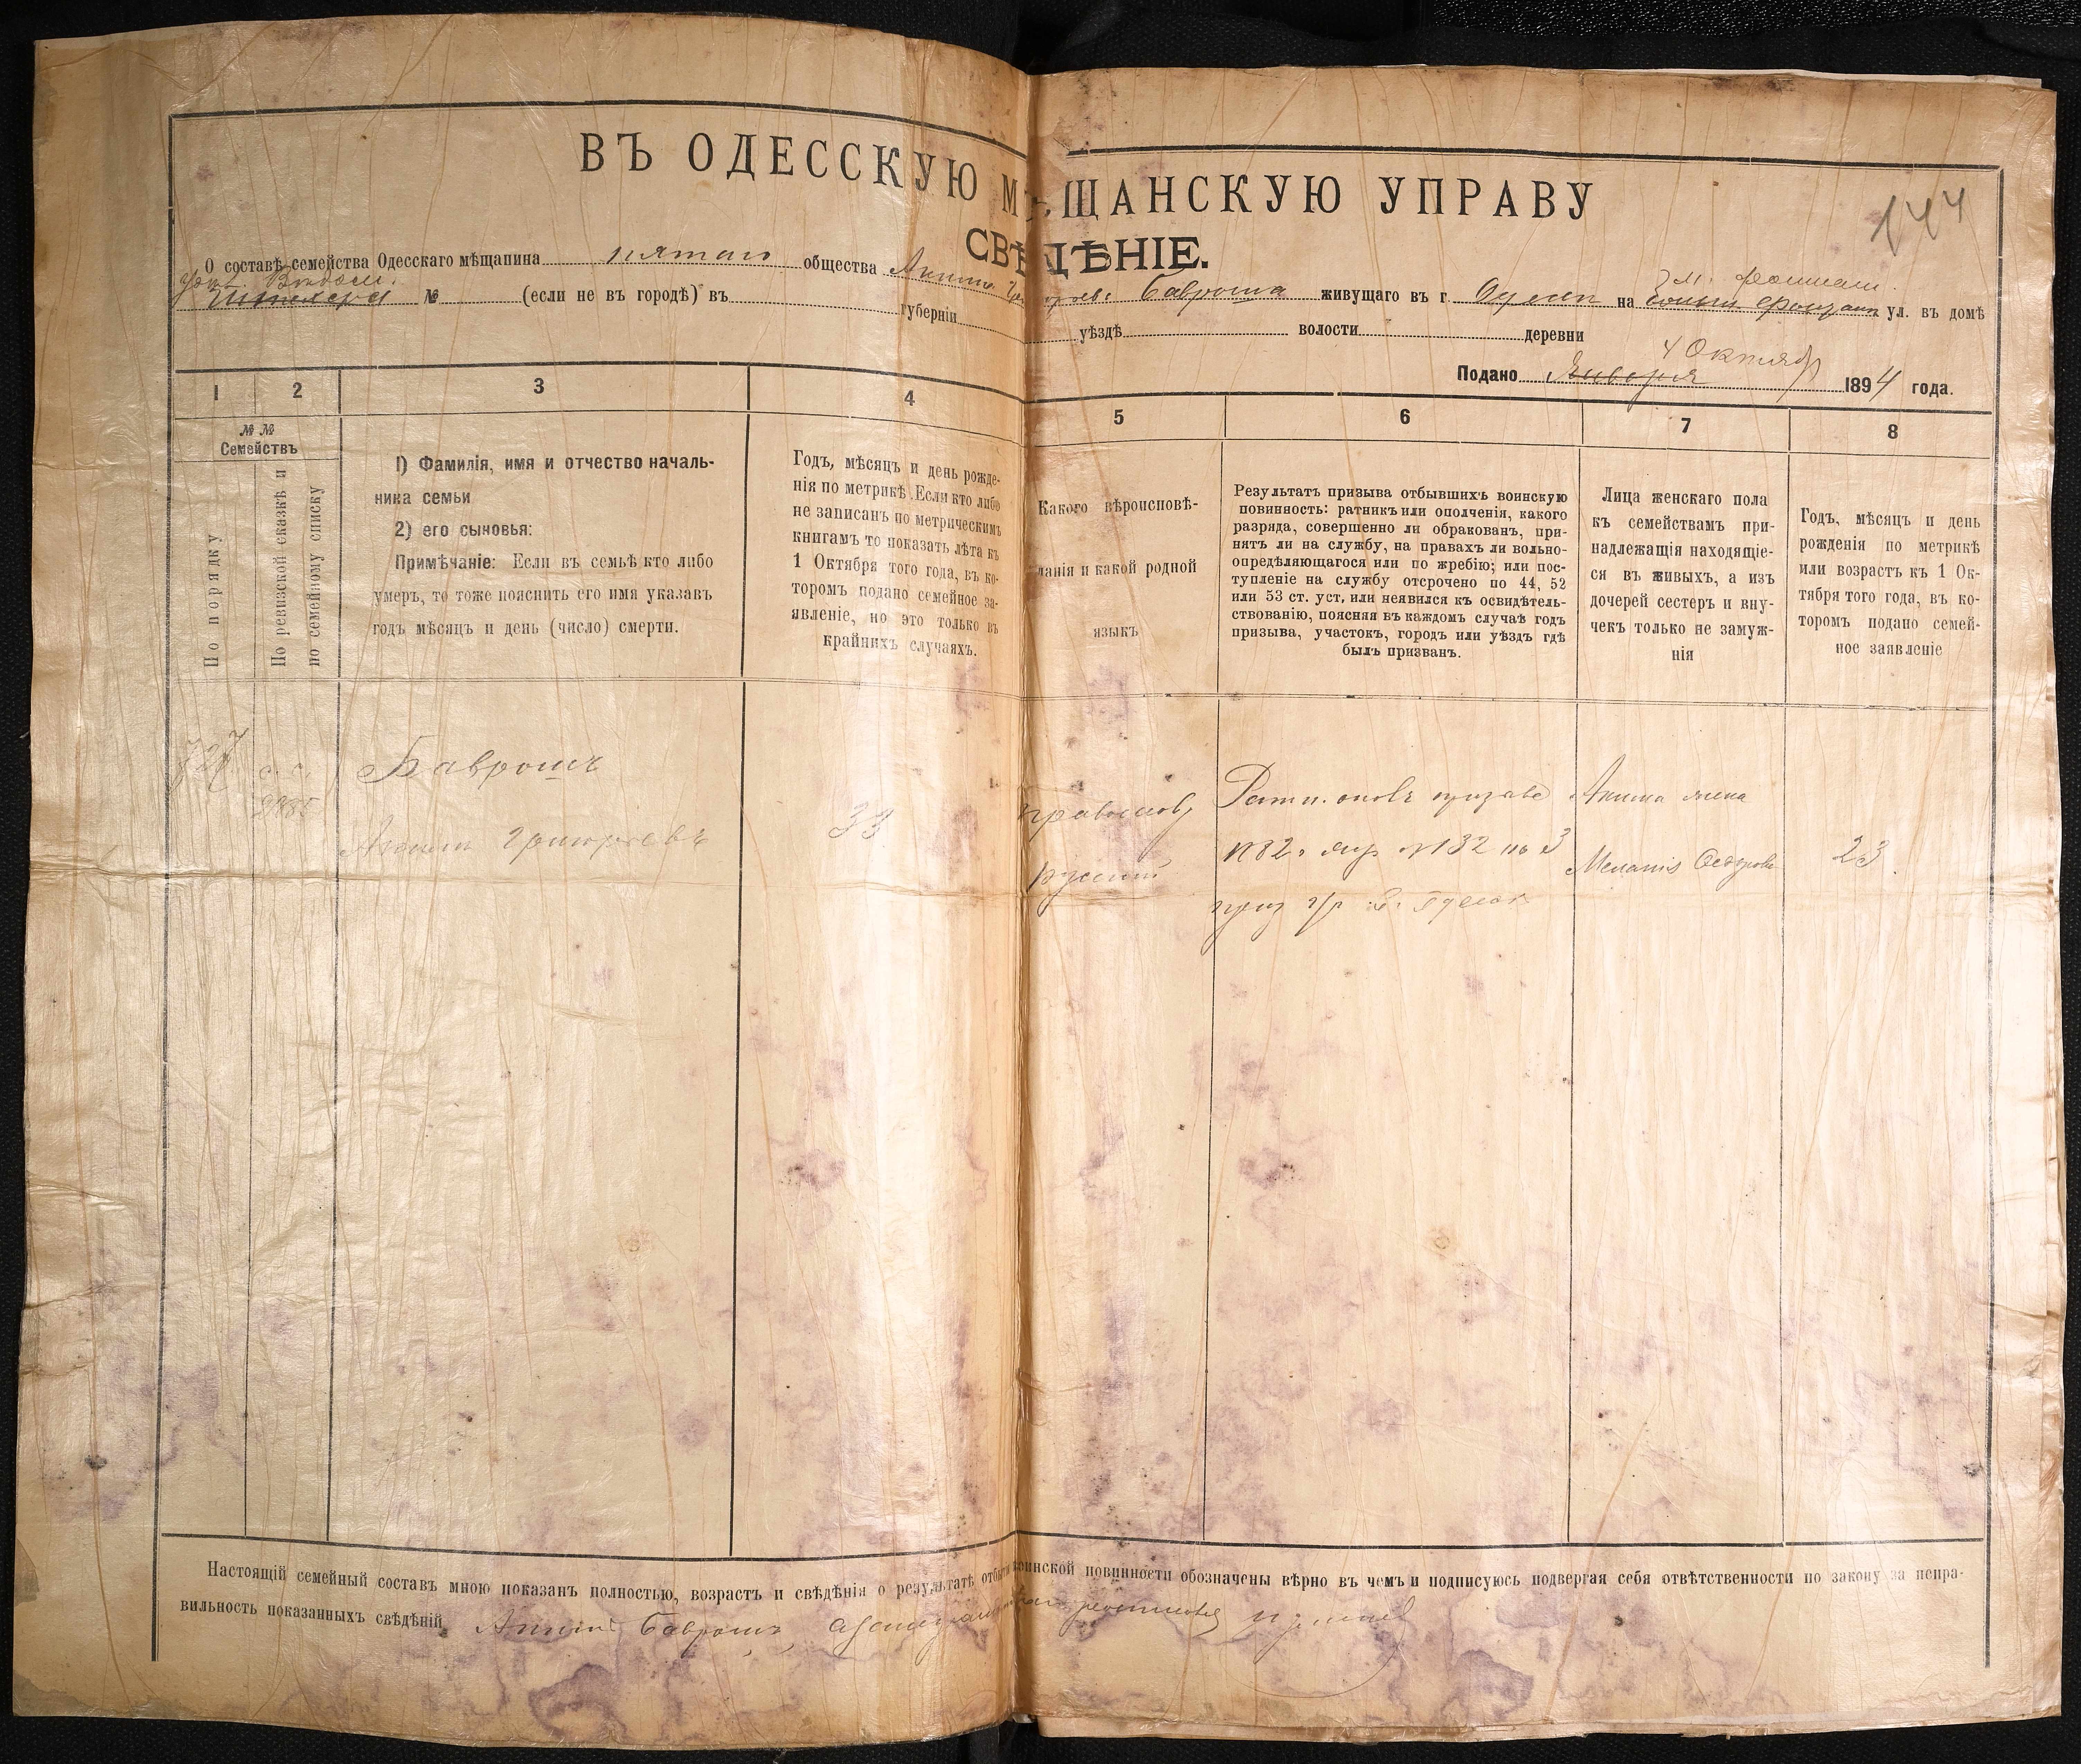 ВЪ ОДЕССКУЮ МѢЩАНСКУЮ УПРАВУ
144
СВѢДѢНІЕ.
О составѣ семейства Одесскаго мѣщанина пятаго общества Бавроша живущаго въ г. Одессѣ на ул. въ домѣ
№ (если не въ городѣ) въ губерніи уѣздѣ волости деревни
4 Октября
Подано Января 1894 года.
1 2 3 4 5 6 7 8
№ №
Семействъ
По порядку
По ревизской сказкѣ и
по семейному списку
1) Фамилія, имя и отчество началь-
ника семьи
2) его сыновья:
Примѣчаніе: Если въ семьѣ кто либо
умеръ, то тоже пояснить его имя указавъ
годъ мѣсяцъ и день (число) смерти.
Годъ, мѣсяцъ и день рожде-
нія по метрикѣ. Если кто либо
не записанъ по метрическимъ
книгамъ то показать лѣта къ
1 Октября того года, въ ко-
торомъ подано семейное за-
явленіе, но это только въ
крайнихъ случаяхъ.
Какого вѣроисповѣ-
данія и какой родной
языкъ
Результатъ призыва отбывшихъ воинскую
повинность: ратникъ или ополченія, какого
разряда, совершенно ли обракованъ, при-
нятъ ли на службу, на правахъ ли вольно-
опредѣляющагося или по жребію; или пос-
тупленіе на службу отсрочено по 44, 52
или 53 ст. уст, или неявился къ освидѣтель-
ствованію, поясняя въ каждомъ случаѣ годъ
призыва, участокъ, городъ или уѣздъ гдѣ
былъ призванъ.
Лица женскаго пола
къ семействамъ при-
надлежащія находящіе-
ся въ живыхъ, а изъ
дочерей сестеръ и вну-
чекъ только не замуж-
нія
Годъ, мѣсяцъ и день
рожденія по метрикѣ
или возрастъ къ 1 Ок-
тября того года, въ ко-
торомъ подано семей-
ное заявленіе
727
с. с.
Баврошъ
Григорьевъ
33
православ
русскій
1882
№132 по 3
жена
Меланія Федорова
23.
Настоящій семейный составъ мною показанъ полностью, возрастъ и свѣдѣнія о результатѣ отбытія воинской повинности обозначены вѣрно въ чемъ и подписуюсь подвергая себя отвѣтственности по закону за непра-
вильность показанныхъ свѣдѣній Баврошъ